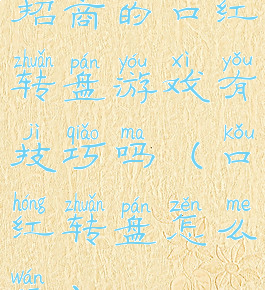 招商的口红
zhuǎn pán yóu xì yǒu
转盘游戏有
jì qiǎo ma kǒu
技巧吗（口
hóng zhuǎn pán zěn me
红转盘怎么
wán